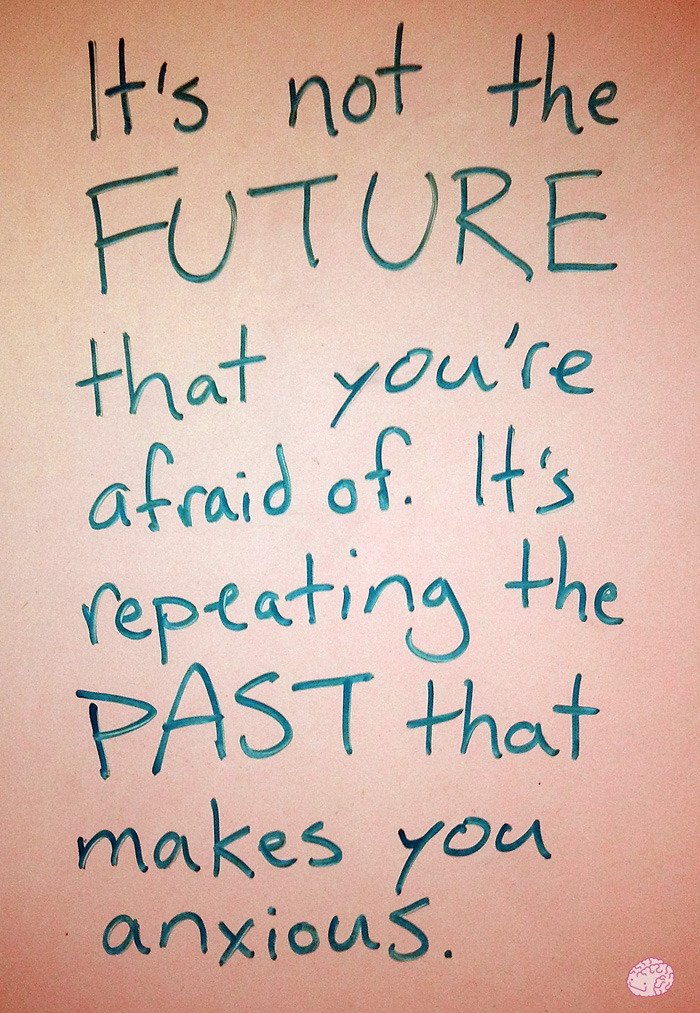 It's not the
FUTURE
that you're
afraid of. It's
repeating the
PAST that
makes you
anxious.